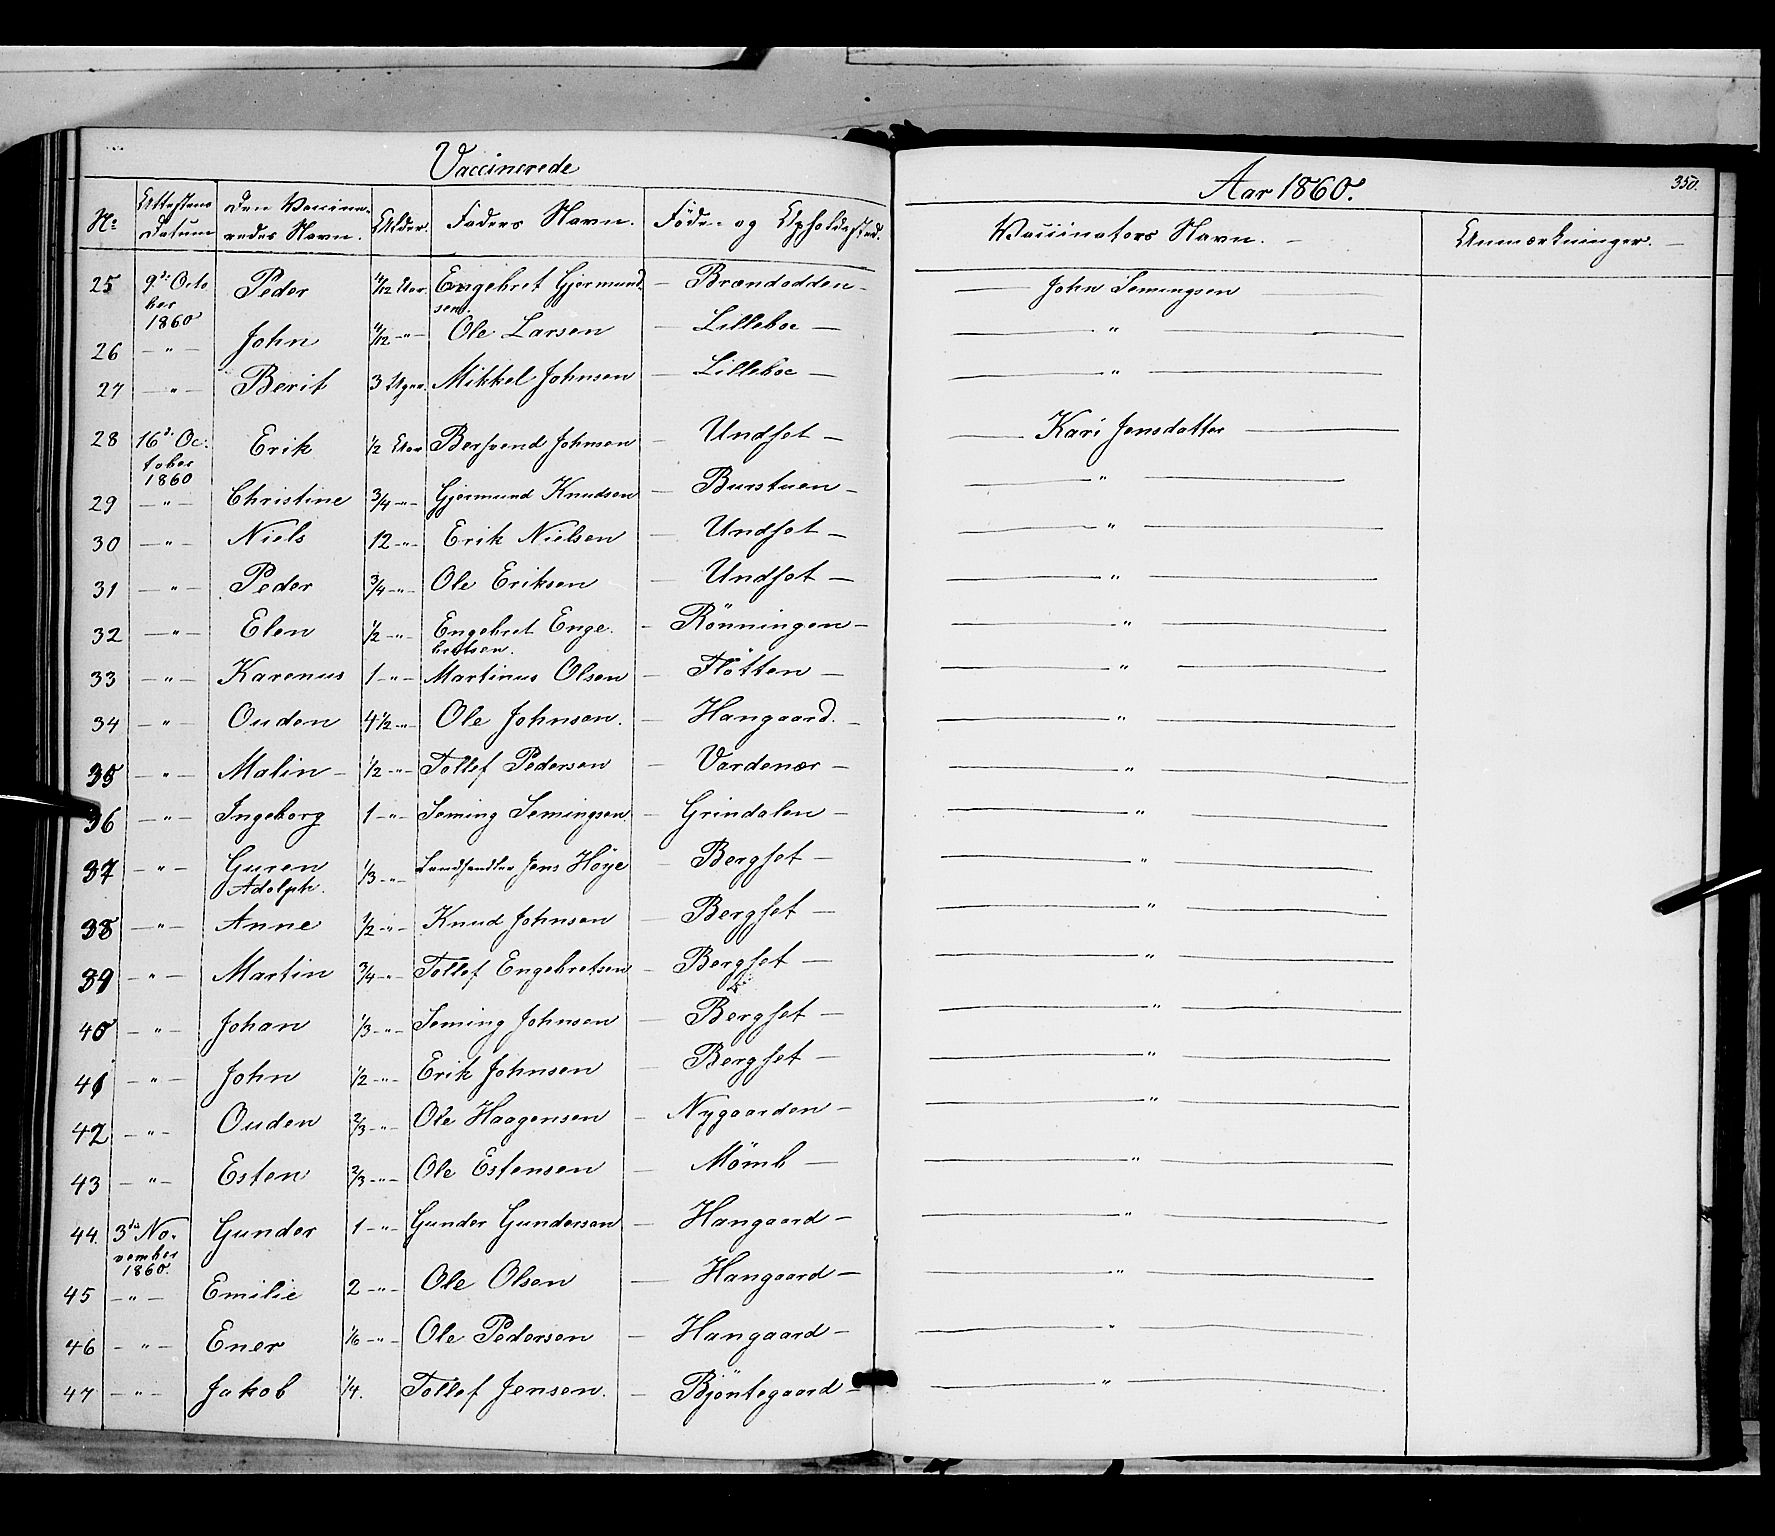 Vaccinerede
Aar 1860.
350.
No Attestens Datum Den Vaccineredes Navn. Alder. Faders Navn. Føde- og Opholdssted. Vaccinators Navn. — Anmærkninger. —
25 9de Octo Peder Aar Engebret Gjermund- — Brændodden — — John Semingsen —
ber sen.
1860
26 — " — John — " — Ole Larsen — Lilleboe — — " —
27 — " — Berit 3 Uger. Mikkel Johnsen — Lilleboe — — " —
28 16de Oc- Erik 1/2 Aar Bersvend Johnsen — Undset — — Kari Jensdatter —
tober
1860
29 — " — Christine 3/4 — " — Gjermund Knudsen — Burstuen — — " —
30 — " — Niels 12 — " — Erik Nielsen — Undset — — " —
31 — " — Peder 3/4 — " — Ole Eriksen — Undset — — " —
32 — " — Elen 1/2 — " — Engebret Enge- — Rönningen — — " —
bretsen.
33 — " — Karenus 1 — " — Martinus Olsen — Flötten — — " —
34 — " — Ouden 4 1/2 — " — Ole Johnsen. — Hangaard. — — " —
35 — " — Malin — 1/2 — " — Tollef Pedersen — Vardenær — — " —
36 — " — Ingeborg 1 — " — Seming Semingsen — Grindalen — — " —
37 — " — Guren 1/3 — " — Landhandler Jens Höye — Bergset — — " —
Adolph.
38 — " — Anne 1/2 — " — Knud Johnsen — Bergset — — " —
39 — " — Martin 3/4 — " — Tollef Engebretsen — Bergset — — " —
40 — " — Johan 1/3 — " — Seming Johnsen — Bergset — — " —
41 — " — John 1/2 — " — Erik Johnsen — Bergset — — " —
42 — " — Ouden 2/3 — " — Ole Haagensen — Nygaarden — — " —
43 — " — Esten 2/3 — " — Ole Estensen — Mömb — — " —
44. 3die No- Gunder 1 — " — Gunder Gundersen — Hangaard — — " —
vember
1860.
45 — " — Emilie 2 — " — Ole Olsen — Hangaard — — " —
46 — " — Ener 1/6 — " — Ole Pedersen — Hangaard — — " —
47 — " — Jakob 1/4. Tollef Jensen. — Bjöntegaard — — " —